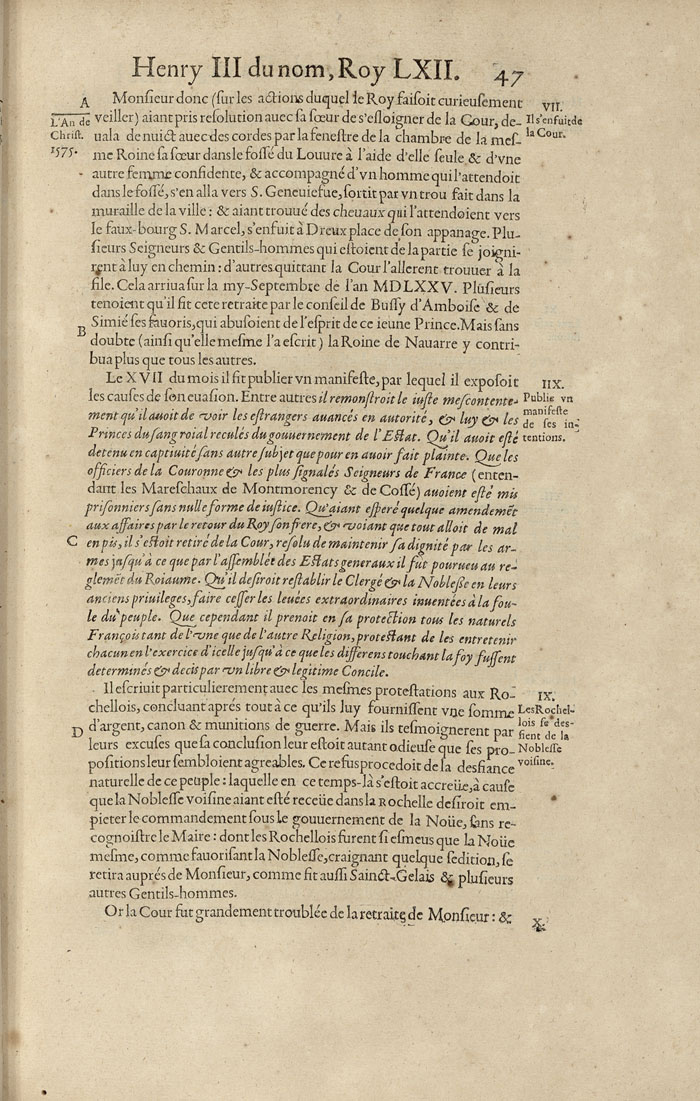 Henry III du nom, Roy LXII. 47
A
L'An de
Christ.
1575.
Monsieur donc (ſur les actions duquel le Roy faiſoit curieuſement
veiller) aiant pris reſolution auec ſa ſœur de s'eſloigner de la Cour, de-
uala de nuict auec des cordes par la feneſtre de la chambre de la meſ-
me Roine ſa ſœur dans le foſſé du Louure à l'aide d'elle ſeule & d'vne
autre femme confidente, & accompagné d'vn homme qui l'attendoit
dans le foſſé, s'en alla vers S. Geneuiefue, ſortit par vn trou fait dans la
muraille de la ville: & aiant trouué des cheuaux qui l'attendoient vers
le faux-bourg S. Marcel, s'enfuit à Dreux place de ſon appanage. Plu-
ſieurs Seigneurs & Gentils-hommes qui eſtoient de la partie ſe joigni-
rent à luy en chemin: d'autres quittant la Cour l'allerent trouuer à la
file. Cela arriua ſur la my-Septembre de l'an MDLXXV. Pluſieurs
tenoient qu'il fit cete retraite par le conſeil de Buſſy d'Amboiſe & de
Simié ſes fauoris, qui abuſoient de l'eſprit de ce ieune Prince. Mais ſans
doubte (ainſi qu'elle meſme l'a eſcrit) la Roine de Nauarre y contri-
bua plus que tous les autres.
VII.
Il s'enfuit de
la Cour.
B
Le XVII du mois il fit publier vn manifeſte, par lequel il expoſoit
les cauſes de ſon euaſion. Entre autres il remonſtroit le iuſte meſcontente-
ment qu'il auoit de voir les eſtrangers auancés en autorité, & luy & les
Princes du ſang roial reculés du gouuernement de l'Eſtat. Qu'il auoit eſté
detenu en captiuité ſans autre ſubjet que pour en auoir fait plainte. Que les
officiers de la Couronne & les plus ſignalés Seigneurs de France (enten-
dant les Mareſchaux de Montmorency & de Coſſé) auoient eſté mis
priſonniers ſans nulle forme de iuſtice. Qu'aiant eſperé quelque amendemẽt
aux affaires par le retour du Roy ſon frere, & voiant que tout alloit de mal
en pis, il s'eſtoit retiré de la Cour, reſolu de maintenir ſa dignité par les ar-
mes juſqu'à ce que par l'aſſemblée des Eſtats generaux il fut pourueu au re-
glemẽt du Roiaume. Qu'il deſiroit reſtablir le Clergé & la Nobleſſe en leurs
anciens priuileges, faire ceſſer les leuées extraordinaires inuentées à la fou-
le du peuple. Que cependant il prenoit en ſa protection tous les naturels
François tant de l'vne que de l'autre Religion, proteſtant de les entretenir
chacun en l'exercice d'icelle juſqu'à ce que les differens touchant la foy fuſſent
determinés & decis par vn libre & legitime Concile.
IIX.
Publie vn
manifeste
de ſes in-
tentions.
C
Il eſcriuit particulierement auec les meſmes proteſtations aux Ro-
chellois, concluant aprés tout à ce qu'ils luy fourniſſent vne ſomme
d'argent, canon & munitions de guerre. Mais ils teſmoignerent par
leurs excuſes que ſa concluſion leur eſtoit autant odieuſe que ſes pro-
poſitions leur ſembloient agreables. Ce refus procedoit de la desfiance
naturelle de ce peuple: laquelle en ce temps-là s'eſtoit accreüe, à cauſe
que la Nobleſſe voiſine aiant eſté receüe dans la Rochelle deſiroit em-
pieter le commandement ſous le gouuernement de la Noüe, ſans re-
cognoiſtre le Maire: dont les Rochellois furent ſi eſmeus que la Noüe
meſme, comme fauoriſant la Nobleſſe, craignant quelque ſedition, ſe
retira auprés de Monſieur, comme fit auſſi Sainct-Gelais & pluſieurs
autres Gentils-hommes.
IX.
Les Rochel-
lois ſe des-
fient de la
Nobleſſe
voiſine.
D
Or la Cour fut grandement troublée de la retraite de Monſieur: &
X.